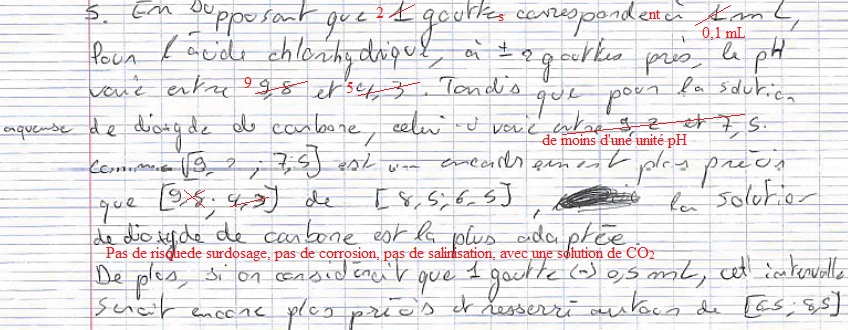 5. En supposant que 2 1 gouttes correspondent à 1 mL, 0,1 mL
Pour l'acide chlorhydrique, à ± 2 gouttes près, le pH
varie entre 9 9,8 et 5 4,3. Tandis que pour la solution
aqueuse de dioxyde de carbone, celui-ci varie entre 9,2 et 7,5.
de moins d'une unité pH
comme [9,2 ; 7,5] est un encadrement plus précis
que [9,8 ; 4,3] de [8,5 ; 6,5], la solution
de dioxyde de carbone est la plus adaptée.
Pas de risquede surdosage, pas de corrosion, pas de salinisation, avec une solution de CO2
De plus, si on considérait que 1 goutte (=) 0,5 mL, cet intervalle
serait encore plus précis et resserré autour de [6,5 ; 8,5]